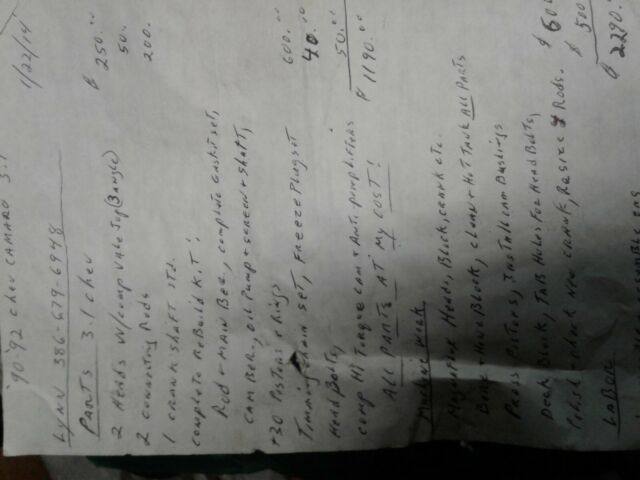 '90-'92 Chev CAMARO 3.1 1/22/14
LYNN 386-679-6948
PARTS 3.1 Chev
2 Heads w/comp valve job (Bare) $250.00
2 connecting Rods 50.
1 crank shaft std. 200.
complete ReBuild KiT!
Rod + MAIN BRG, complete Gasket set,
cam Ber., oil Pump + screw + shaft,
+30 Pistons + Rings
Timing chain set, Freeze Plug set 600.00
Head Bolts, 40.00
comp HI Torque cam + Anti-pump lifters 50.00
ALL PARTS AT MY COST! $1190.00
Machine work
Magnaflux Heads, Block, crank etc.
Block, clean + HOT TANK ALL PARTS
Press Pistons, Install cam Bushings
Deck Block, TAP Holes For Head Bolts, $600
Polish + check New CRANK, Resize Rods. $500
LABOR $2290.00